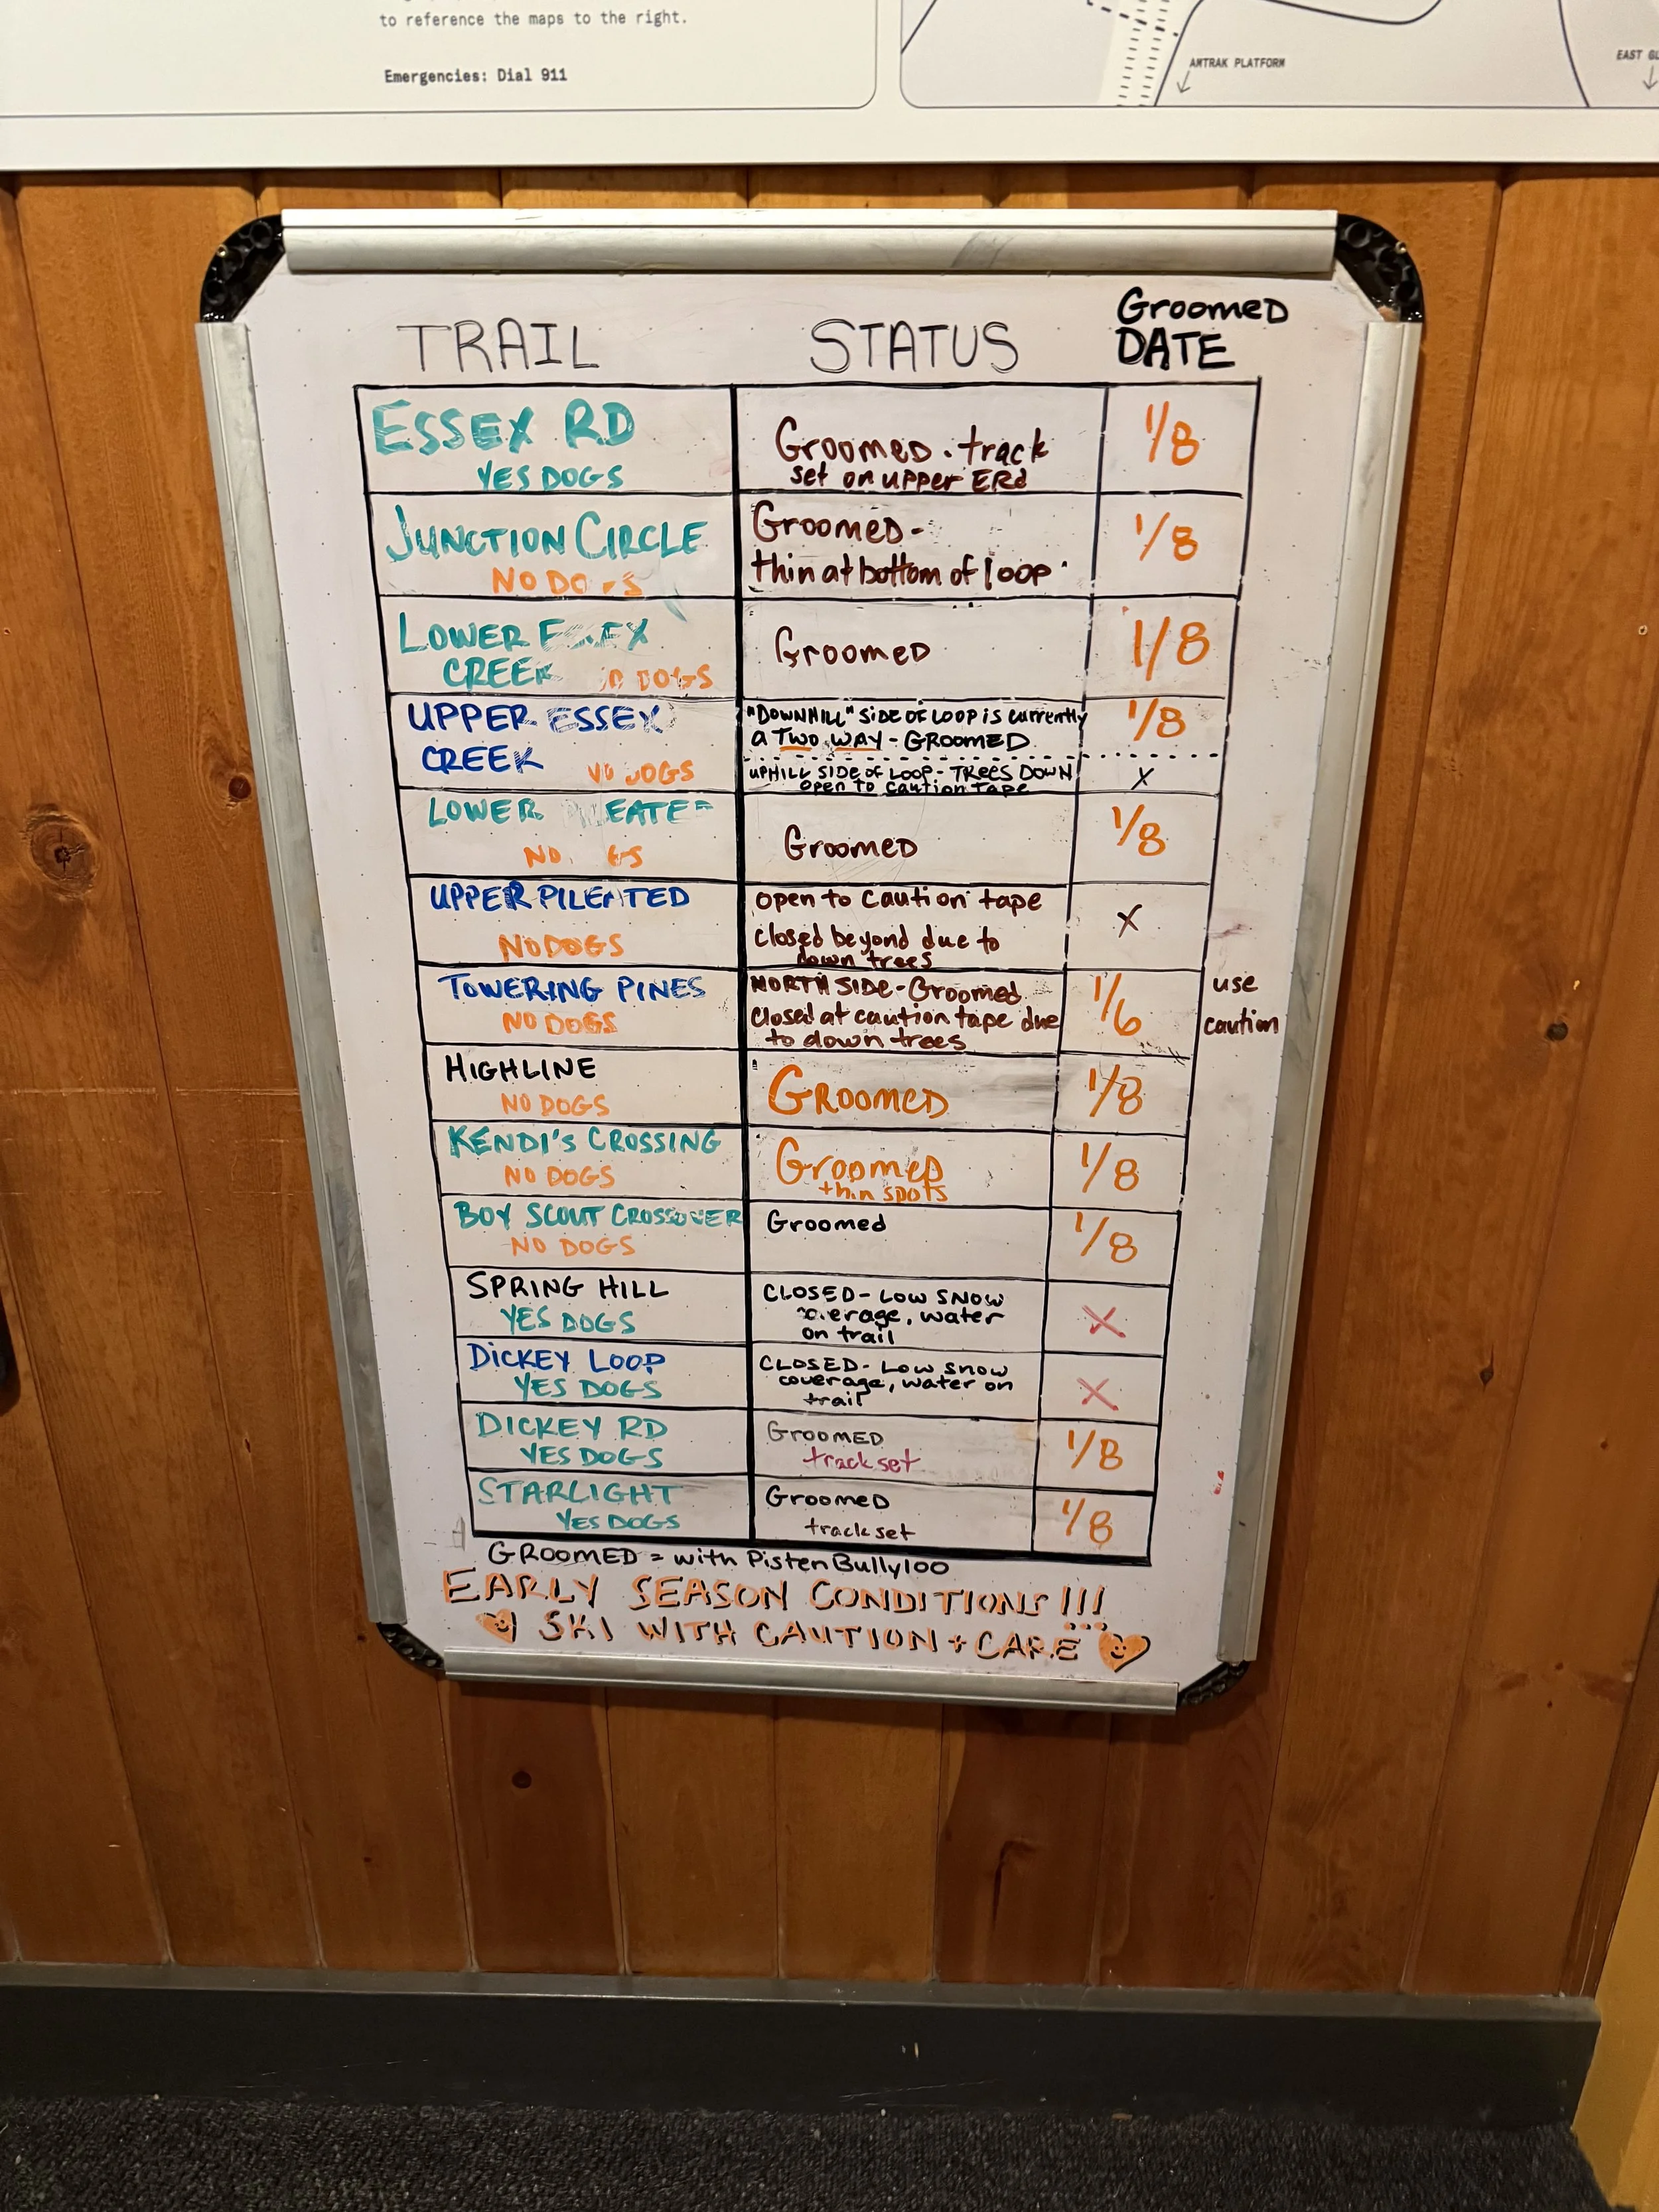 to reference the maps to the right.
Emergencies: Dial 911
AMTRAK PLATFORM
EAST
TRAIL STATUS GROOMED DATE
ESSEX RD
YES DOGS
Groomed. track
set on upper ERd
1/8
JUNCTION CIRCLE
NO DOGS
Groomed-
thin at bottom of loop
1/8
LOWER ESSEX
CREEK NO DOGS
Groomed
1/8
UPPER ESSEX
CREEK NO DOGS
"DOWNHILL" SIDE OF LOOP is currently
a TWO WAY - GROOMED
1/8
UPHILL SIDE OF LOOP - TREES DOWN
open to caution tape
X
LOWER
NO DOGS
Groomed
1/8
UPPER PILEATED
NO DOGS
open to caution tape
closed beyond due to
down trees
X
TOWERING PINES
NO DOGS
NORTH SIDE-Groomed
closed at caution tape due
to down trees
1/6
use
caution
HIGHLINE
NO DOGS
GROOMED
1/8
KENDI'S CROSSING
NO DOGS
Groomed
thin spots
1/8
BOY SCOUT CROSSOVER
NO DOGS
Groomed
1/8
SPRING HILL
YES DOGS
CLOSED- LOW SNOW
coverage, water
on trail
X
DICKEY LOOP
YES DOGS
CLOSED- LOW SNOW
coverage, water on
trail
X
DICKEY RD
YES DOGS
GROOMED
track set
1/8
STARLIGHT
YES DOGS
GROOMED
track set
1/8
GROOMED = with PistenBully100
EARLY SEASON CONDITIONS!!!
SKI WITH CAUTION + CARE